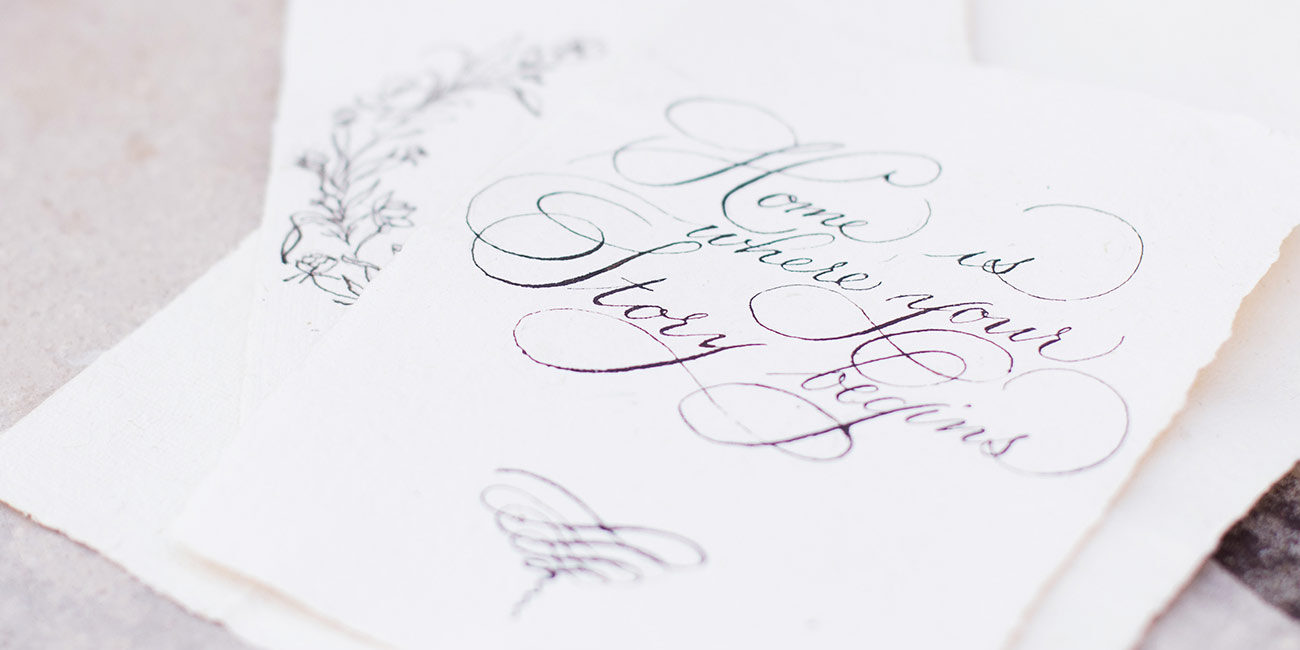 Home is
where your
Story begins